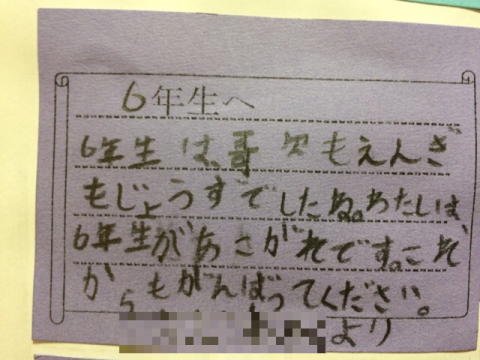 6年生へ
6年生は、歌もえんぎ
もじょうずでしたね。わたしは、
6年生があこがれです。これ
からもがんばってください。
より